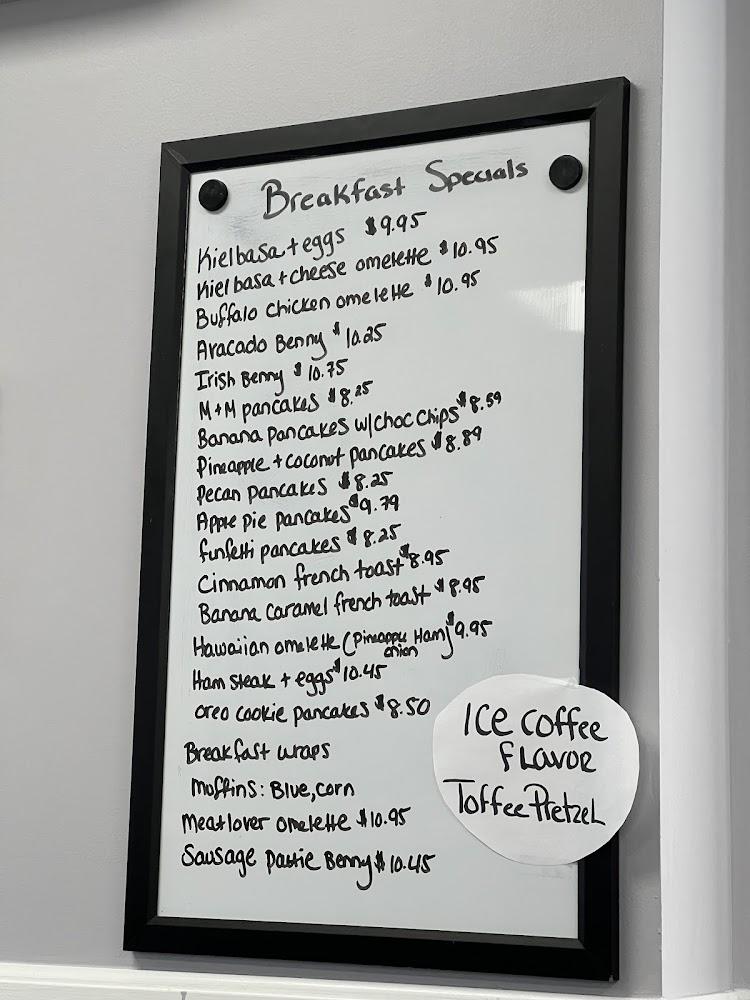 Breakfast Specials
Kielbasa + eggs $9.95
Kielbasa + cheese omelette $10.95
Buffalo chicken omelette $10.95
Avacado Benny $10.25
Irish Benny $10.75
M+M pancakes $8.25
Banana pancakes w/choc chips $8.59
Pineapple + coconut pancakes $8.89
Pecan pancakes $8.25
Apple pie pancakes $9.79
funfetti pancakes $8.25
Cinnamon french toast $8.95
Banana caramel french toast $8.95
Hawaiian omelette (pineapple Ham) $9.95
onion
Ham steak + eggs $10.45
oreo cookie pancakes $8.50
Breakfast wraps
Moffins: Blue, corn
Meatlover omelette $10.95
Sausage pattie Benny $10.45
ICE coffee
FLAVOR
Toffee Pretzel